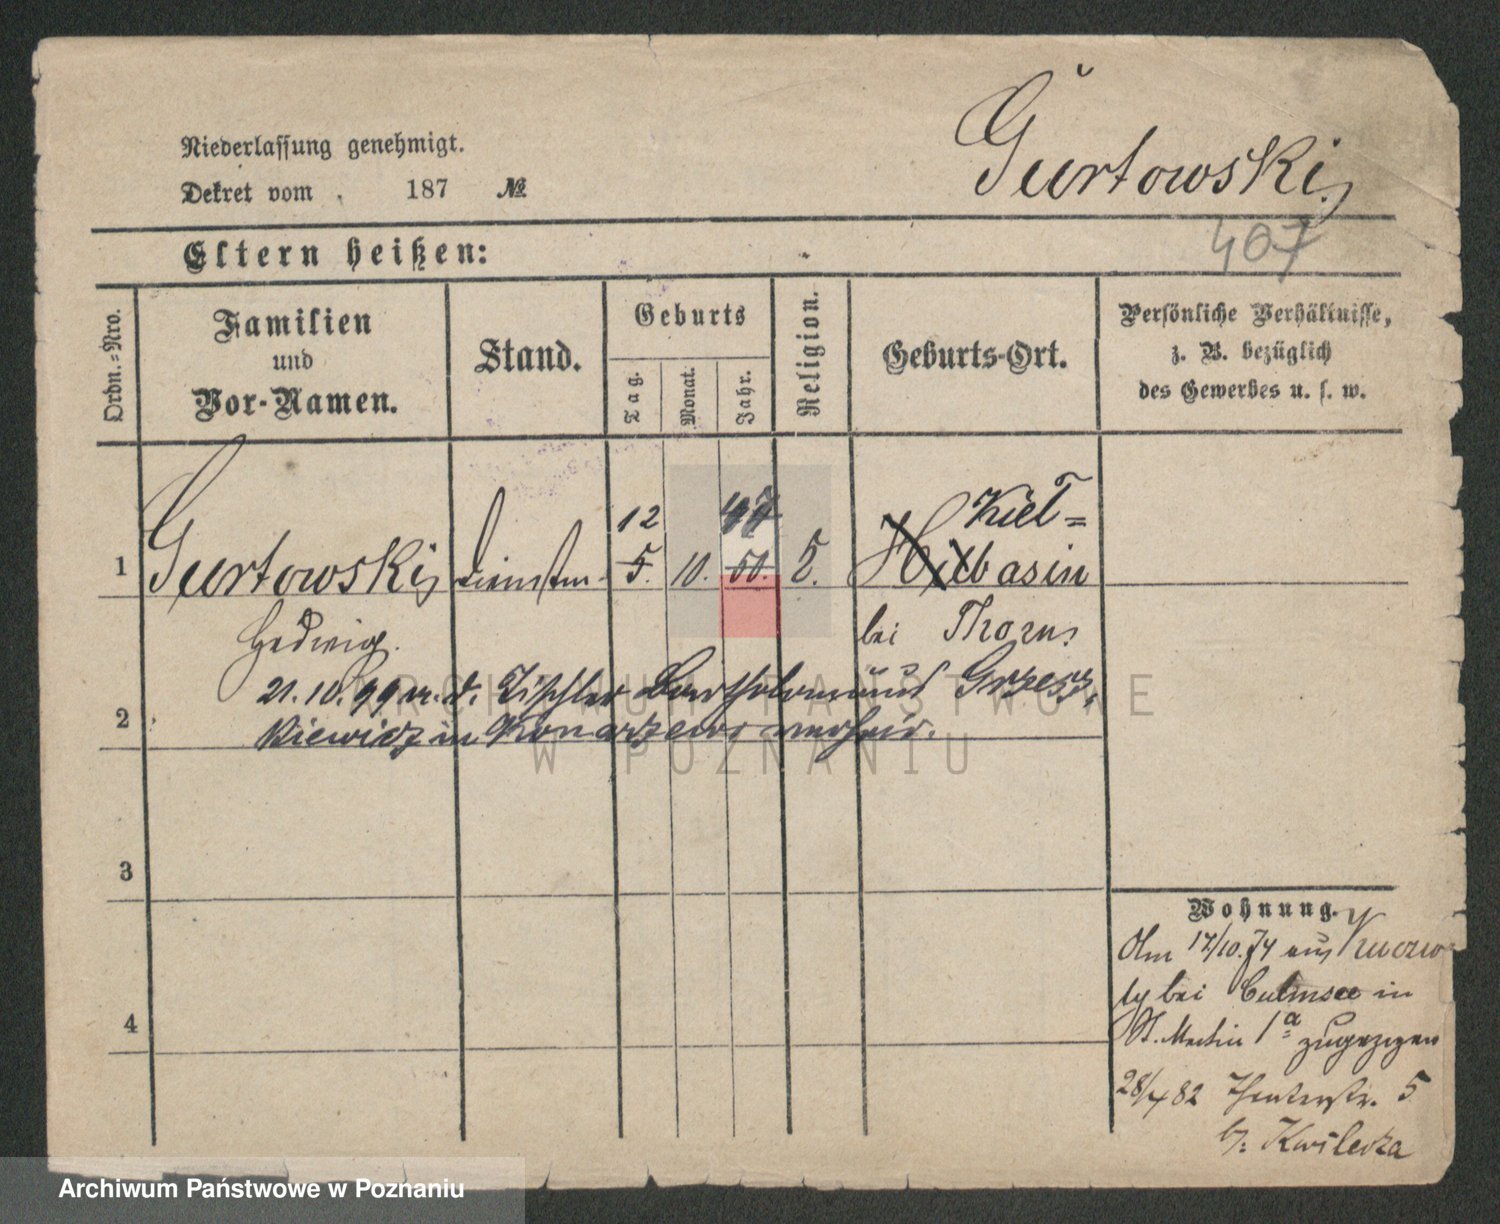 Gurtowski,
Niederlassung genehmigt.
Dekret vom 187 №
407
Eltern heißen:
Ordn.=Nro.
Familien
und
Vor-Namen.
Stand.
Geburts
Tag.
Monat.
Jahr.
Religion.
Geburts-Ort.
Persönliche Verhältnisse,
z. B. bezüglich
des Gewerbes u. s. w.
12 Kiel=
1 Gurtowski, 5. 10. 50. basin
Hedwig. bei Thorn,
21.10.99 m. d. Tischler Bartholomäus Grzesz,
2
kiewicz in Konarzewo verheir.
3
4
Wohnung.
Am 17/10.74 aus
bei Culmsee in
St. Martin 1a zugezogen
28/4 82 Theaterstr. 5
b. Kwilecka
ARCHIWUM PAŃSTWOWE
W POZNANIU
Archiwum Państwowe w Poznaniu